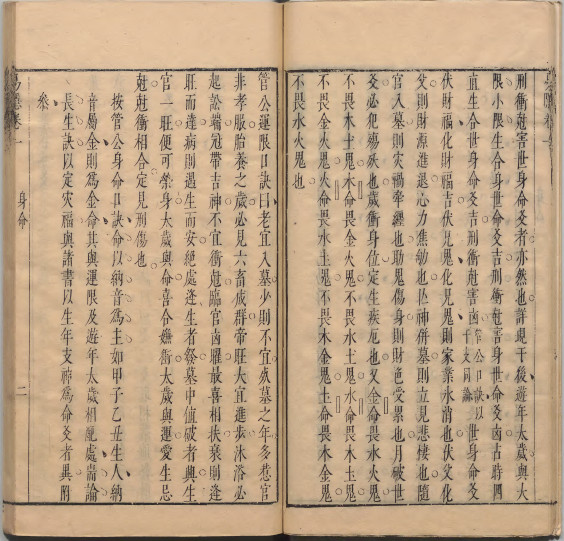 刑衝尅害世身命爻者亦然也詳現于後遊年太歲與大
限小限生合身世命爻吉刑衝尅害身世命爻凶古時四
直生合世身命爻吉刑衝尅害凶管公口訣以干支同論世身命爻
伏財福化財福吉伏兄鬼化兄鬼則家業氷消也伏父化
父則財源進退心力焦勞也墜神併墓則立見悲棲也隨
官入墓則災禍牽纏也助鬼傷身則財色受累也月破世
爻必犯也歲衝身位定生疾厄也又金命畏火鬼
不畏木土鬼木命畏金火鬼不畏水土鬼水命畏木土鬼
不畏金火鬼火命畏水土鬼不畏木金鬼土命畏木金鬼
不畏水火鬼也
管公運限口訣曰老宜入墓少則不宜病墓之年多惹官
非孝服胎養之歲必見六畜成群帝旺大宜進步沐浴必
起訟端冠帶吉神不宜衝尅臨官凶曜最喜相扶衰則逢
旺而達病則遇生而安絕處逢生者發墓中值破者興生
官一旺便可榮身太歲與命喜合嫌衝太歲與運愛生忌
尅尅衝相合定見刑傷也
按管公身命口訣命以納音為主如甲子乙丑生人納
音屬金則為金命其與運限及遊年太歲相處當論
長生訣以定災福與諸書以生年支神為命爻者異附
叅
易隱卷一
身命
二